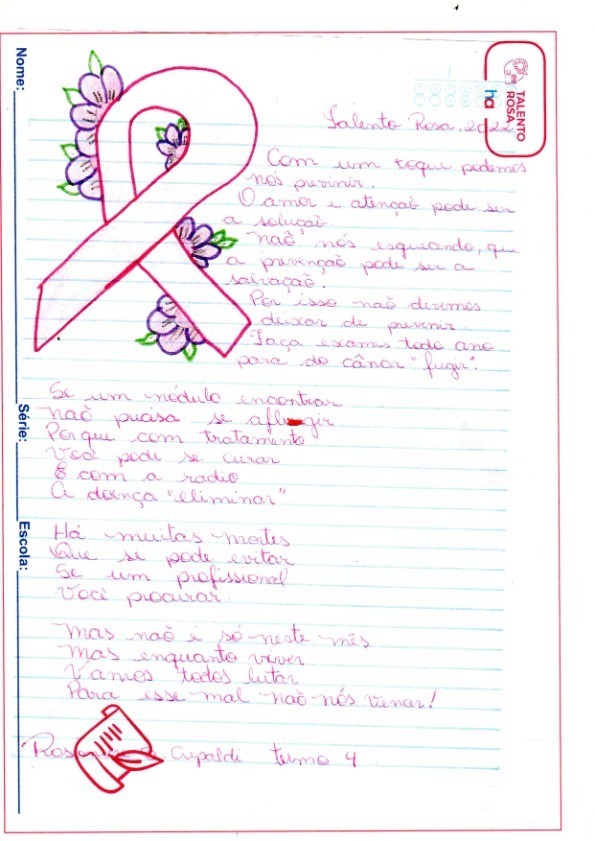 TALENTO
ROSA
ha
Nome:
Série:
Escola:
Talento Rosa, 2022
Com um toque podemos
nós previnir.
O amor e atençaõ pode ser
a soluçaõ.
Naõ nós esqueando, que
a prevençaõ pode ser a
salvaçaõ.
Por isso naõ devemos
deixar de prevenir.
Faça exames todo ano
para do câncer "fugir".
Se um nódulo encontrar
naõ precisa se afligir
Porque com tratamento
Você pode se curar
E com a radio
A doença "eliminar"
Há muitas mortes
Que se pode evitar
Se um profissional
Você procurar.
Mas naõ é só neste mês
Mas enquanto viver
Vamos todos lutar
Para esse mal naõ nós vencer!
Cupaldi turno 4